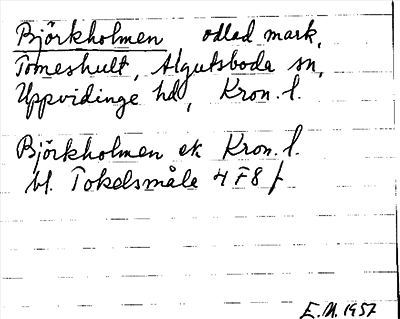 Björkholmen odlad mark,
Tomeshult, Algutsboda sn,
Uppvidinge hd, Kron. l.
Björkholmen ek Kron. l.
bl. Tokelsmåle 4 F8 f
E.M. 1957